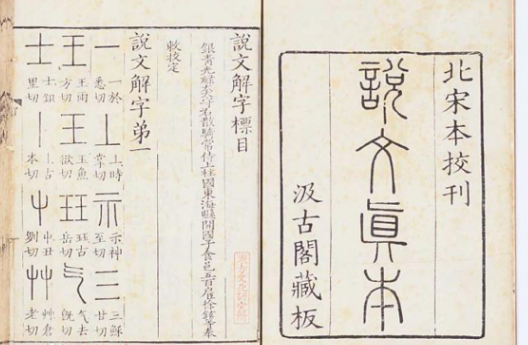 北宋本校刊
說文眞本
汲古閣藏板
說文解字標目
銀青光祿大夫守右散騎常侍上柱國東海縣開國子食邑五百戶臣徐鉉等奉
敕校定
說文解字弟一
一 於悉切 丄 時掌切 示 神至切 三 穌甘切
王 雨方切 玉 魚欲切 玨 古岳切 气 去旣切
士 鉏里切 丨 古本切 屮 丑列切 艸 倉老切